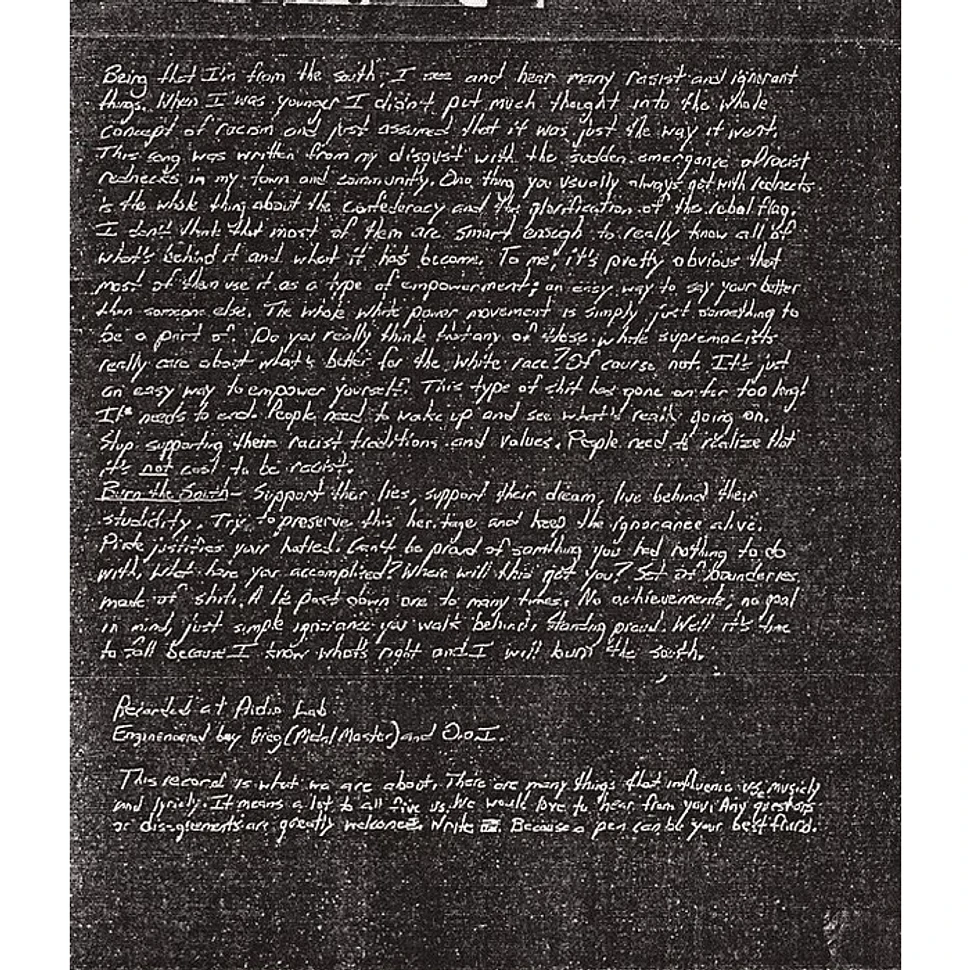 Being that I'm from the south, I see and hear many rasist and ignorant
things. When I was younger I didn't put much thought into the whole
concept of racism and just assumed that it was just the way it went.
This song was written from my disgust with the sudden emergance of racist
rednecks in my town and community. One thing you usually always get with rednects
is the whole thing about the confederacy and the glorification of the rebel flag.
I don't think that most of them are smart enough to really know all of
what's behind it and what it has become. To me, it's pretty obvious that
most of them use it as a type of empowerment; an easy way to say your better
than someone else. The whole white power movement is simply just something to
be a part of. Do you really think that any of these white supremacists
really care about what's better for the white race? Of course not. It's just
an easy way to empower yourself. This type of shit has gone on for too long!
It needs to end. People need to wake up and see what's really going on.
Stop supporting their racist traditions and values. People need to realize that
it's not cool to be racist.
Burn the South - Support their lies, support their dream, live behind their
studidity. Try to preserve this heritage and keep the ignorance alive.
Pride justifies your hatred. Can't be proud of something you had nothing to do
with, what have you accomplised? Where will this get you? Set of bounderies
made of shit. A lie past down one to many times. No achievements, no goal
in mind, just simple ignorance you walk behind, standing proud. Well it's time
to fall because I know what's right and I will burn the south.
Recorded at Audio Lab
Enginendered bey Greg (Metal Master) and O.o.I.
This record is what we are about. There are many things that influence us musicly
and lyricly. It means a lot to all five us. We would love to hear from you. Any questions
or disagreements are greatly welcomed. Write Because a pen can be your best friend.